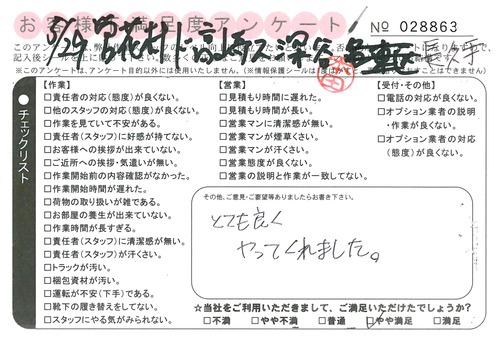 お客様満足度アンケート
№ 028863
8/29
※このアンケートは、アンケート目的以外には使用いたしません。
チェックリスト
【作業】
□責任者の対応(態度)が良くない。
□他のスタッフの対応(態度)が良くない。
□作業を見ていて不安がある。
□責任者(スタッフ)に好感が持てない。
□お客様への挨拶が出来ていない。
□ご近所への挨拶・気遣いが無い。
□作業開始前の内容確認がなかった。
□作業開始時間が遅れた。
□荷物の取り扱いが雑である。
□お部屋の養生が出来ていない。
□作業時間が長すぎる。
□責任者(スタッフ)に清潔感が無い。
□責任者(スタッフ)が汗くさい。
□トラックが汚い。
□梱包資材が汚い。
□運転が不安(下手)である。
□靴下の履き替えをしてない。
□スタッフにやる気がみられない。
【営業】
□見積もり時間に遅れた。
□見積もり時間が長い。
□営業マンに清潔感が無い。
□営業マンが煙草くさい。
□営業マンが汗くさい。
□営業態度が良くない。
□営業の説明と作業が一致してない。
【受付・その他】
□電話の対応が良くない。
□オプション業者の説明
・作業が良くない。
□オプション業者の対応
(態度)が良くない。
その他、ご意見・ご要望等ありましたらお書き下さい。
とても良く
やってくれました。
☆当社をご利用いただきまして、ご満足いただけたでしょうか?
□不満 □やや不満 □普通 □やや満足 □満足